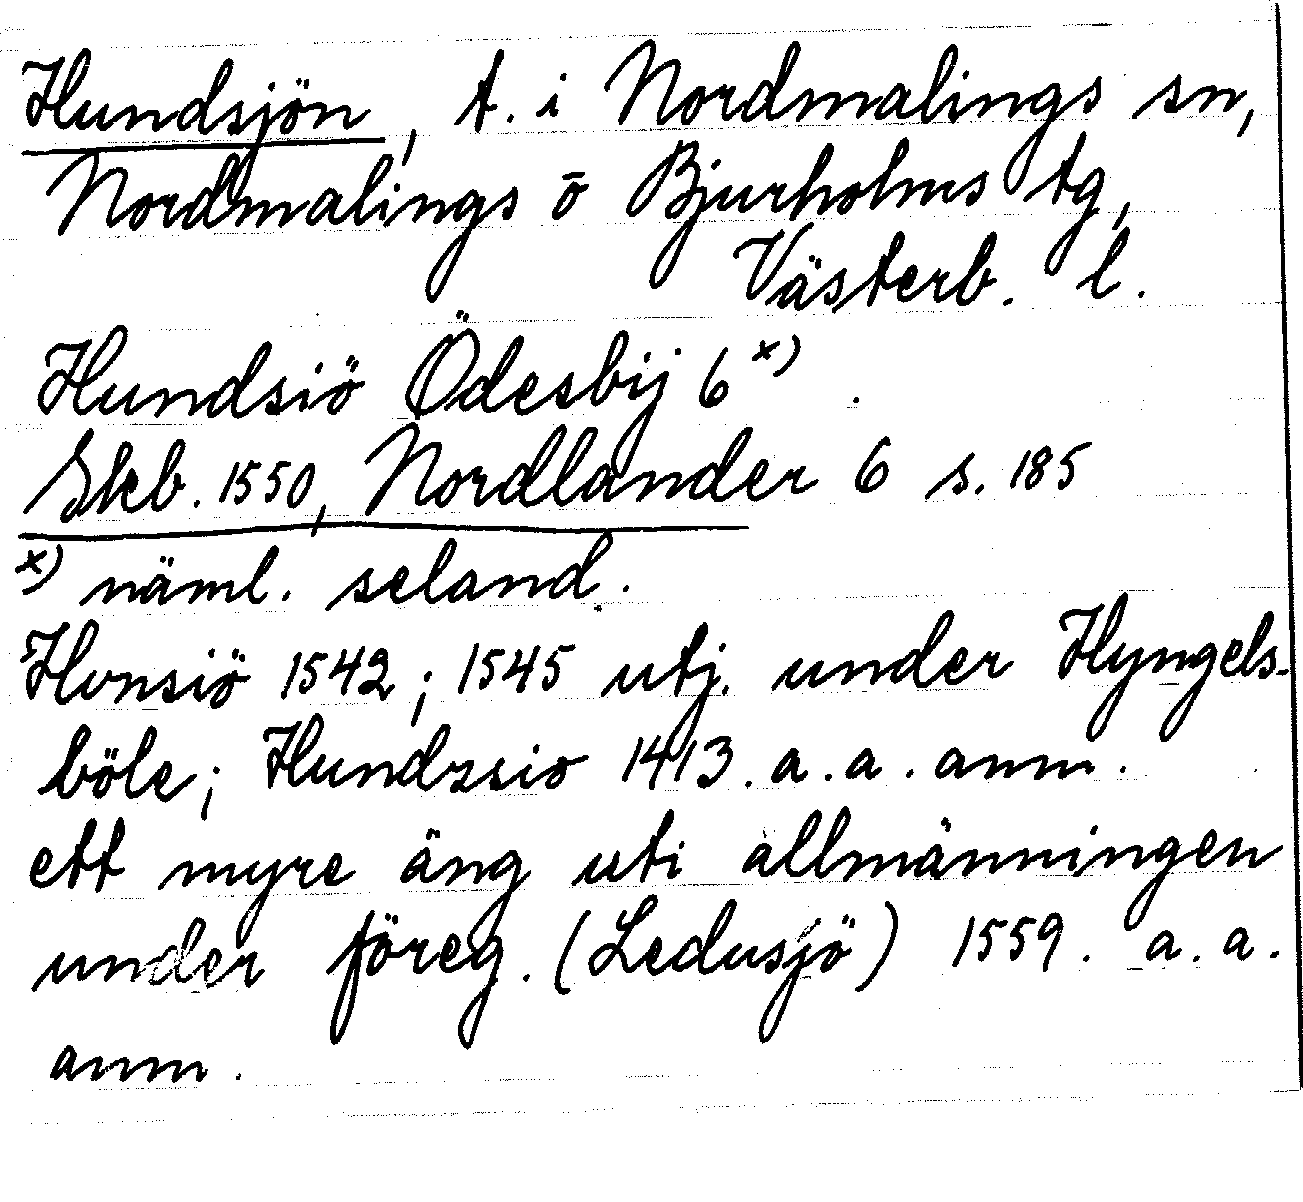 Hundsjön, t. i Nordmalings sn,
Nordmalings o Bjurholms tg,
Västerb. l.
Hundsiö Ödesbij 6 x)
Skb. 1550, Nordlander 6 s. 185
x) näml. seland.
Honsiö 1542; 1545 utj. under Hyngels-
böle; Hundzsio 1413. a. a. anm.
ett myre äng uti allmänningen
under föreg. (Ledusjö) 1559. a. a.
anm.